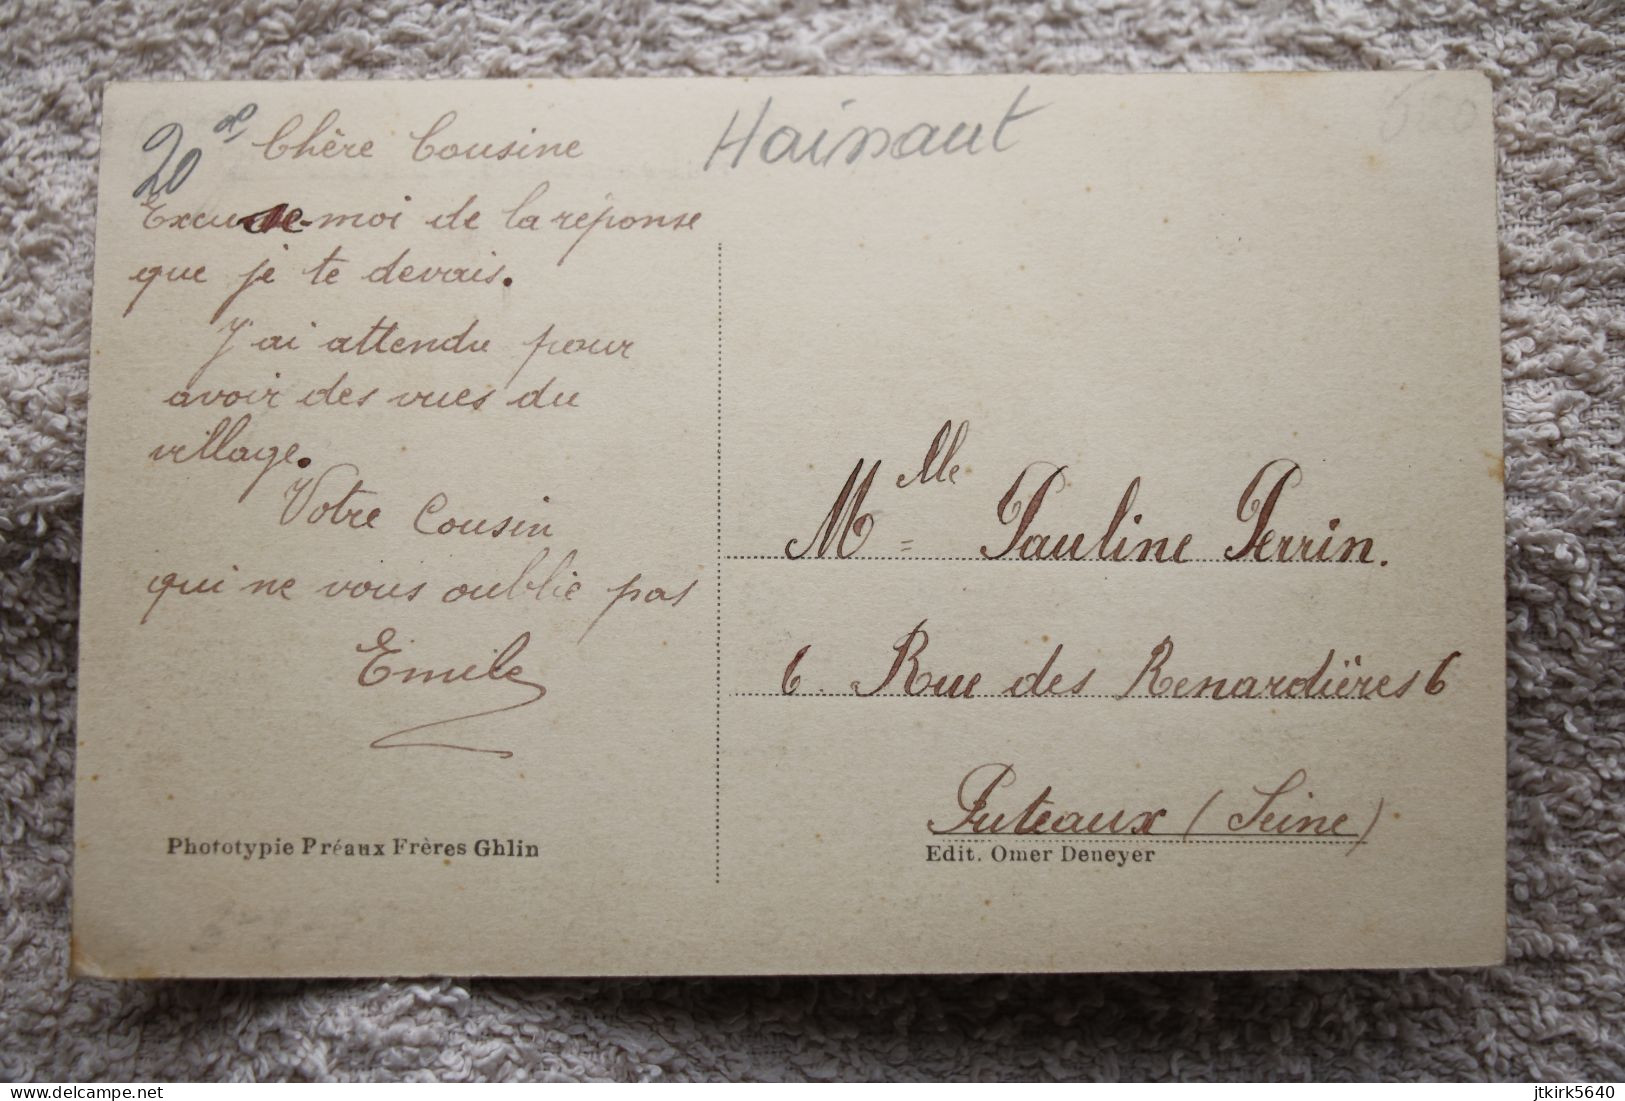 20
Hainaut
520
Chère Cousine
Excuse-moi de la réponse
que je te devais.
J'ai attendu pour
avoir des vues du
village.
Votre Cousin
qui ne vous oublie pas
Emile
Phototypie Préaux Frères Ghlin
Mlle Pauline Perrin.
6. Rue des Renardïères 6
Puteaux (Seine)
Edit. Omer Deneyer
www.delcampe.net
jtkirk5640